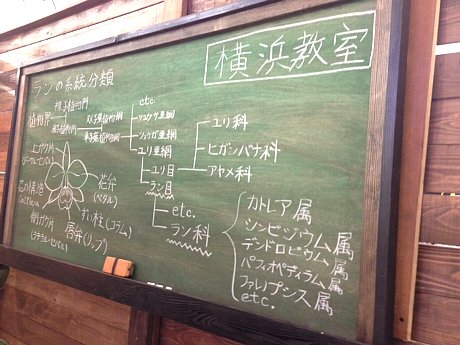 横浜教室
ランの系統分類
植物界
裸子植物門
被子植物門
双子葉植物綱
単子葉植物綱
etc.
ツユクサ亜綱
ショウガ亜綱
ユリ亜綱
ユリ目
ラン目
ユリ科
ヒガンバナ科
アヤメ科
etc.
ラン科
カトレア属
シンビジウム属
デンドロビウム属
パフィオペディラム属
ファレノプシス属
etc.
花の構造
Cattleya
上ガク片
(ドーサル・セパル)
花弁
(ペタル)
ずい柱(コラム)
側ガク片
(ラテラル・セパル)
唇弁(リップ)